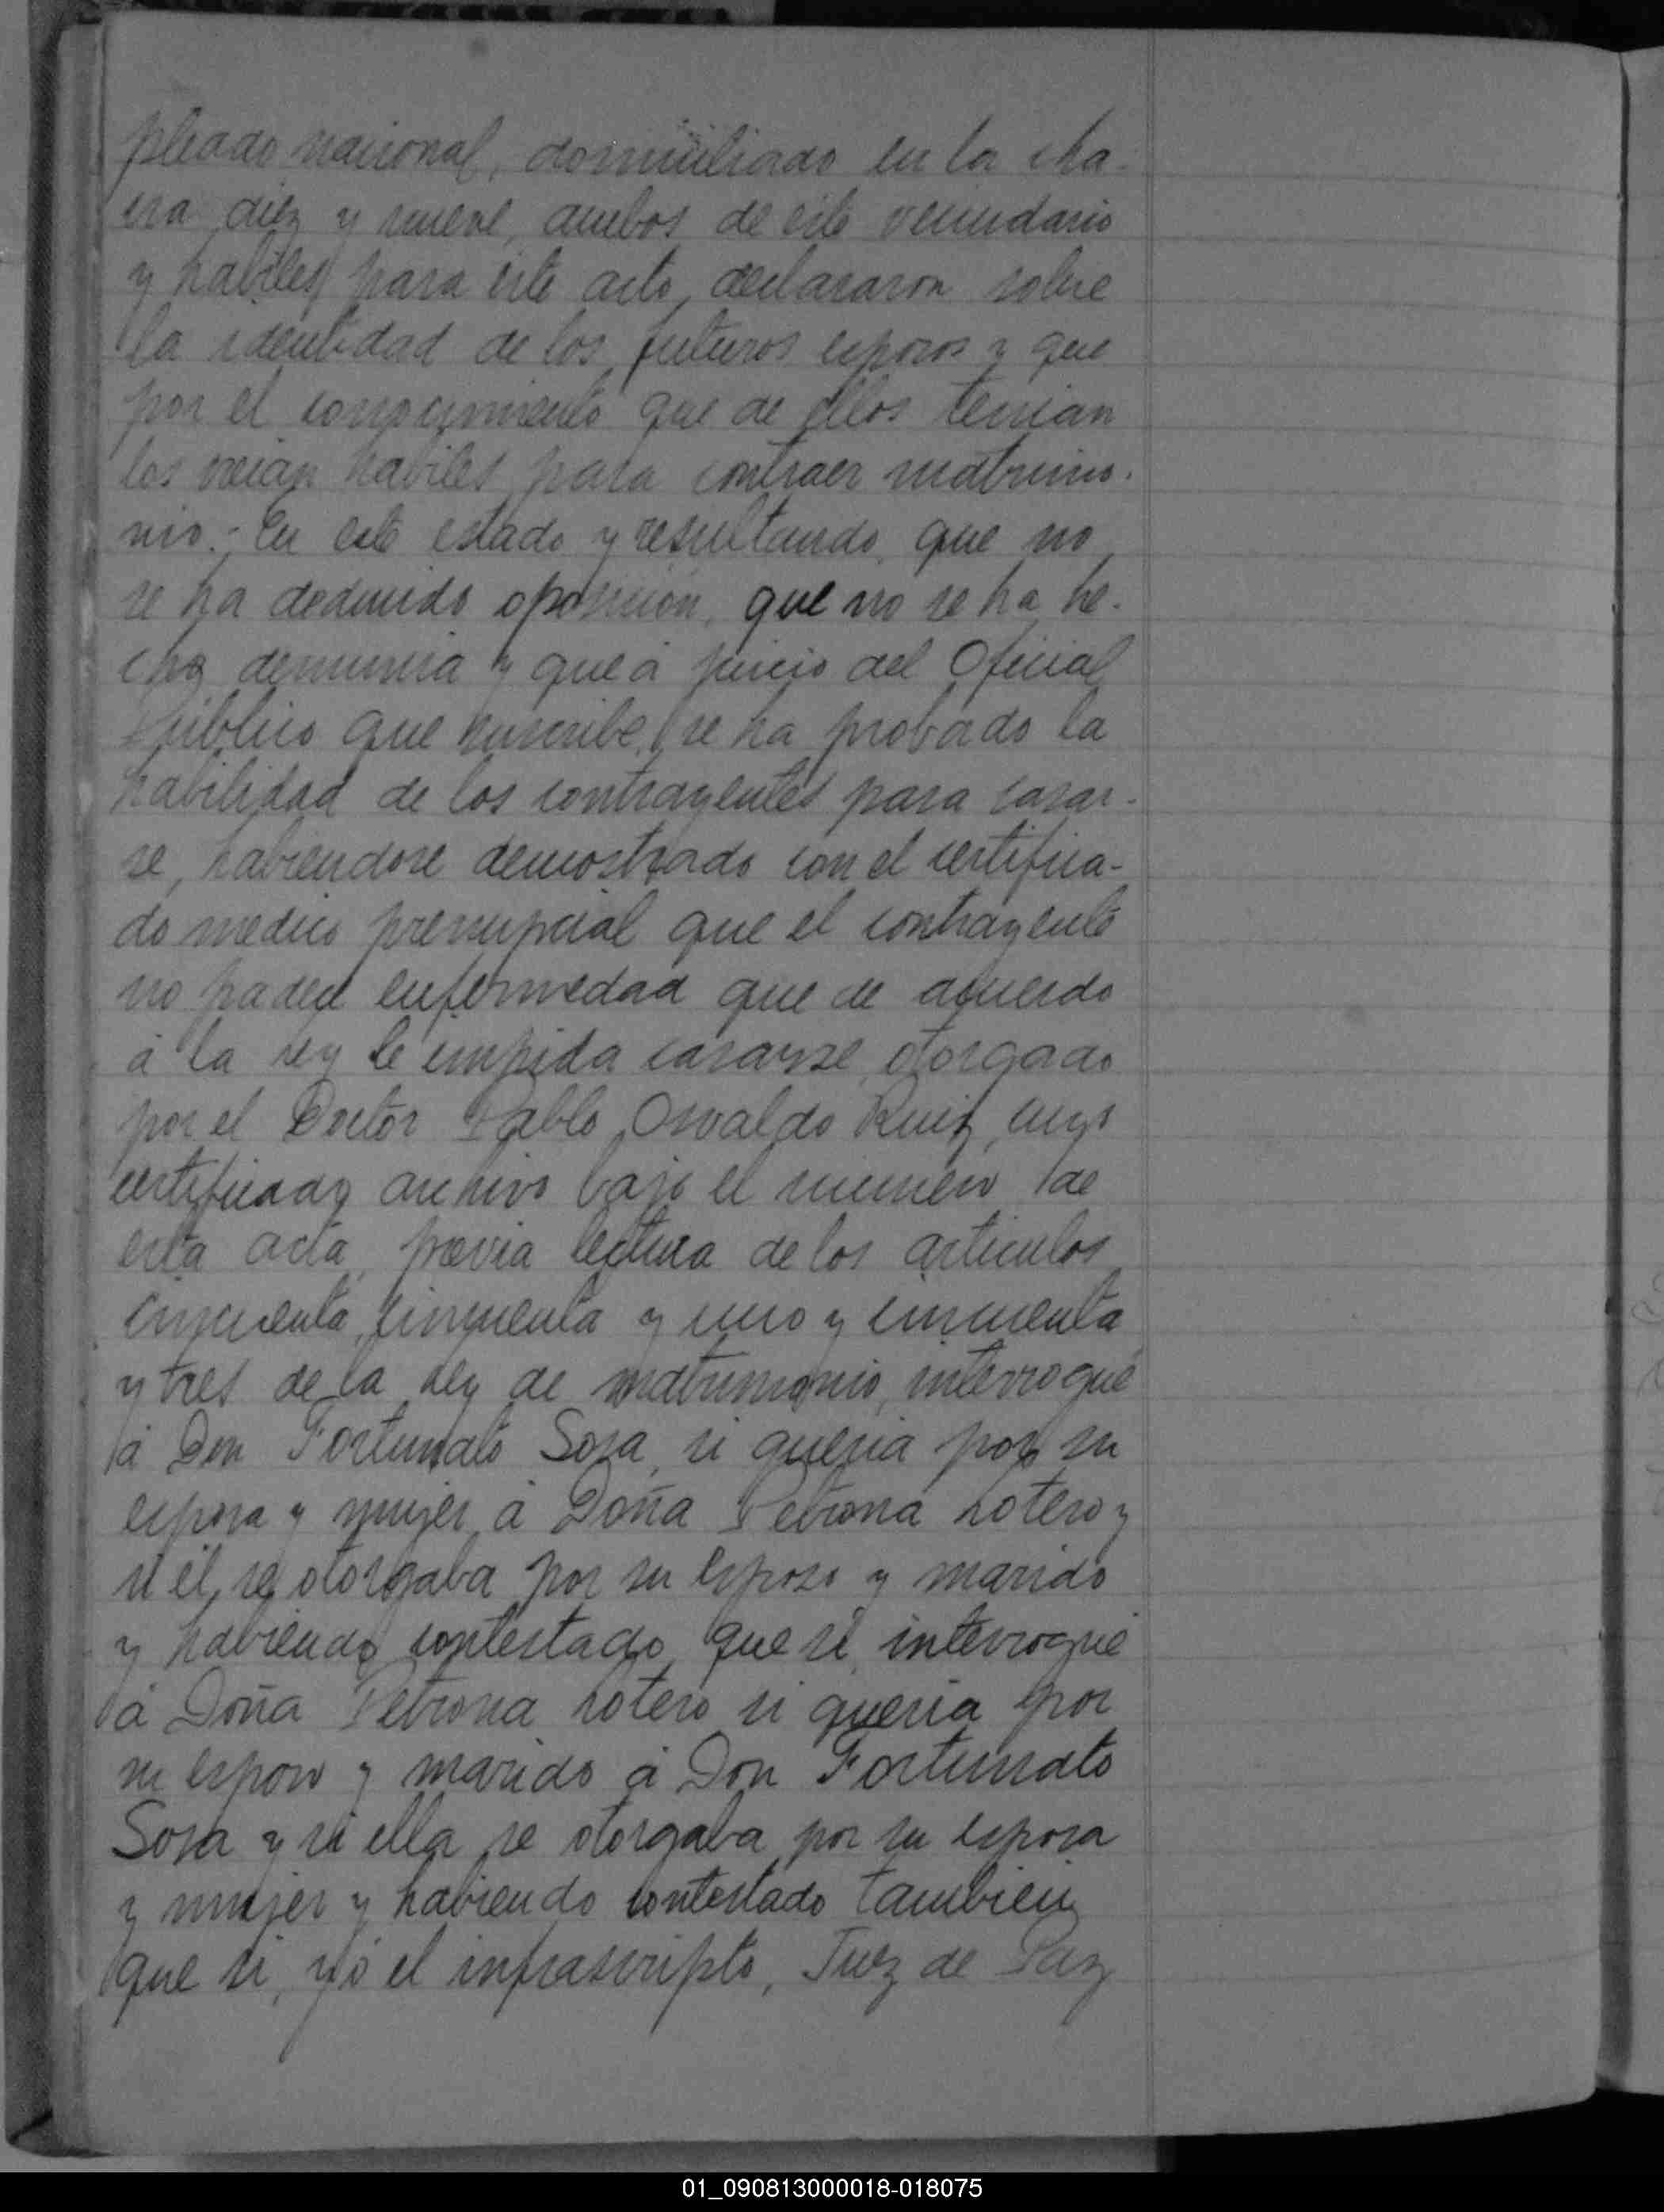 pleado nacional, domiciliado en la cha-
cra diez y nueve, ambos de este vecindario
y habiles para este acto, declararon sobre
la identidad de los futuros esposos y que
por el conocimiento que de ellos tenian
los creian habiles para contraer matrimo-
nio.- En este estado y resultando que no
se ha deducido oposicion, que no se ha he-
cho denuncia y que á juicio del Oficial
Público que suscribe, se ha probado la
habilidad de los contrayentes para casar-
se, habiendose demostrado con el certifica-
do medico prenupcial que el contrayente
no padece enfermedad que de acuerdo
á la ley le impida casarse, otorgado
por el Doctor Pablo Osvaldo Ruiz, cuyo
certificado archivo bajo el numero de
esta acta, previa lectura de los articulos
cincuenta, cincuenta y uno y cincuenta
y tres de la ley de matrimonio, interrogué
á Don Fortunato Sosa, si queria por su
esposa y mujer á Doña Petrona Sotero y
si él se otorgaba por su esposo y marido
y habiendo contestado que si, interrogué
á Doña Petrona Sotero si queria por
su esposo y marido á Don Fortunato
Sosa y si ella se otorgaba por su esposa
y mujer y habiendo contestado tambien
que si, yo el infrascripto, Juez de Paz
01_090813000018-018075